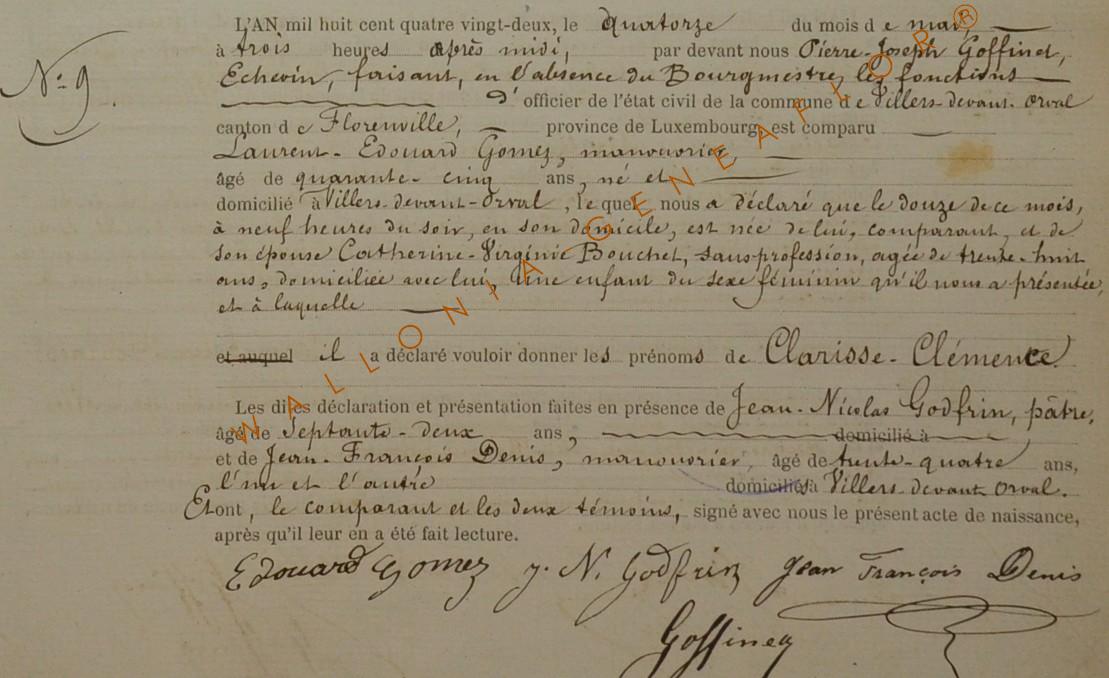 N° 9.
L'AN mil huit cent quatre vingt-deux, le quatorze du mois d e mai
à trois heures après midi, par devant nous Pierre-Joseph Goffinet,
Echevin, faisant, en l'absence du Bourgmestre, les fonctions
D'officier de l'état civil de la commune d e Villers-devant-Orval
canton d e Florenville, province de Luxembourg, est comparu
Laurent-Edouard Gomez, manouvrier,
âgé de quarante-cinq ans, né et
domicilié à Villers-devant-Orval, lequel nous a déclaré que le douze de ce mois,
à neuf heures du soir, en son domicile, est née de lui, comparant, et de
son épouse Catherine-Virginie Bouchet, sans profession, agée de trente-huit
ans, domiciliée avec lui, une enfant du sexe féminin qu'il nous a présentée,
et à laquelle
et auquel il a déclaré vouloir donner les prénoms de Clarisse-Clémence
Les dites déclaration et présentation faites en présence de Jean-Nicolas Godfrin, pâtre,
âgé de Septante-deux ans, domicilié à
et de Jean-François Denis, manouvrier, âgé de trente-quatre ans,
l'un et l'autre domiciliés à Villers-devant-Orval.
Et ont, le comparant et les deux témoins, signé avec nous le présent acte de naissance,
après qu'il leur en a été fait lecture.
Edouard Gomez J. N. Godfrin Jean François Denis
Goffinet
WALLONIA GENEAFLOR®